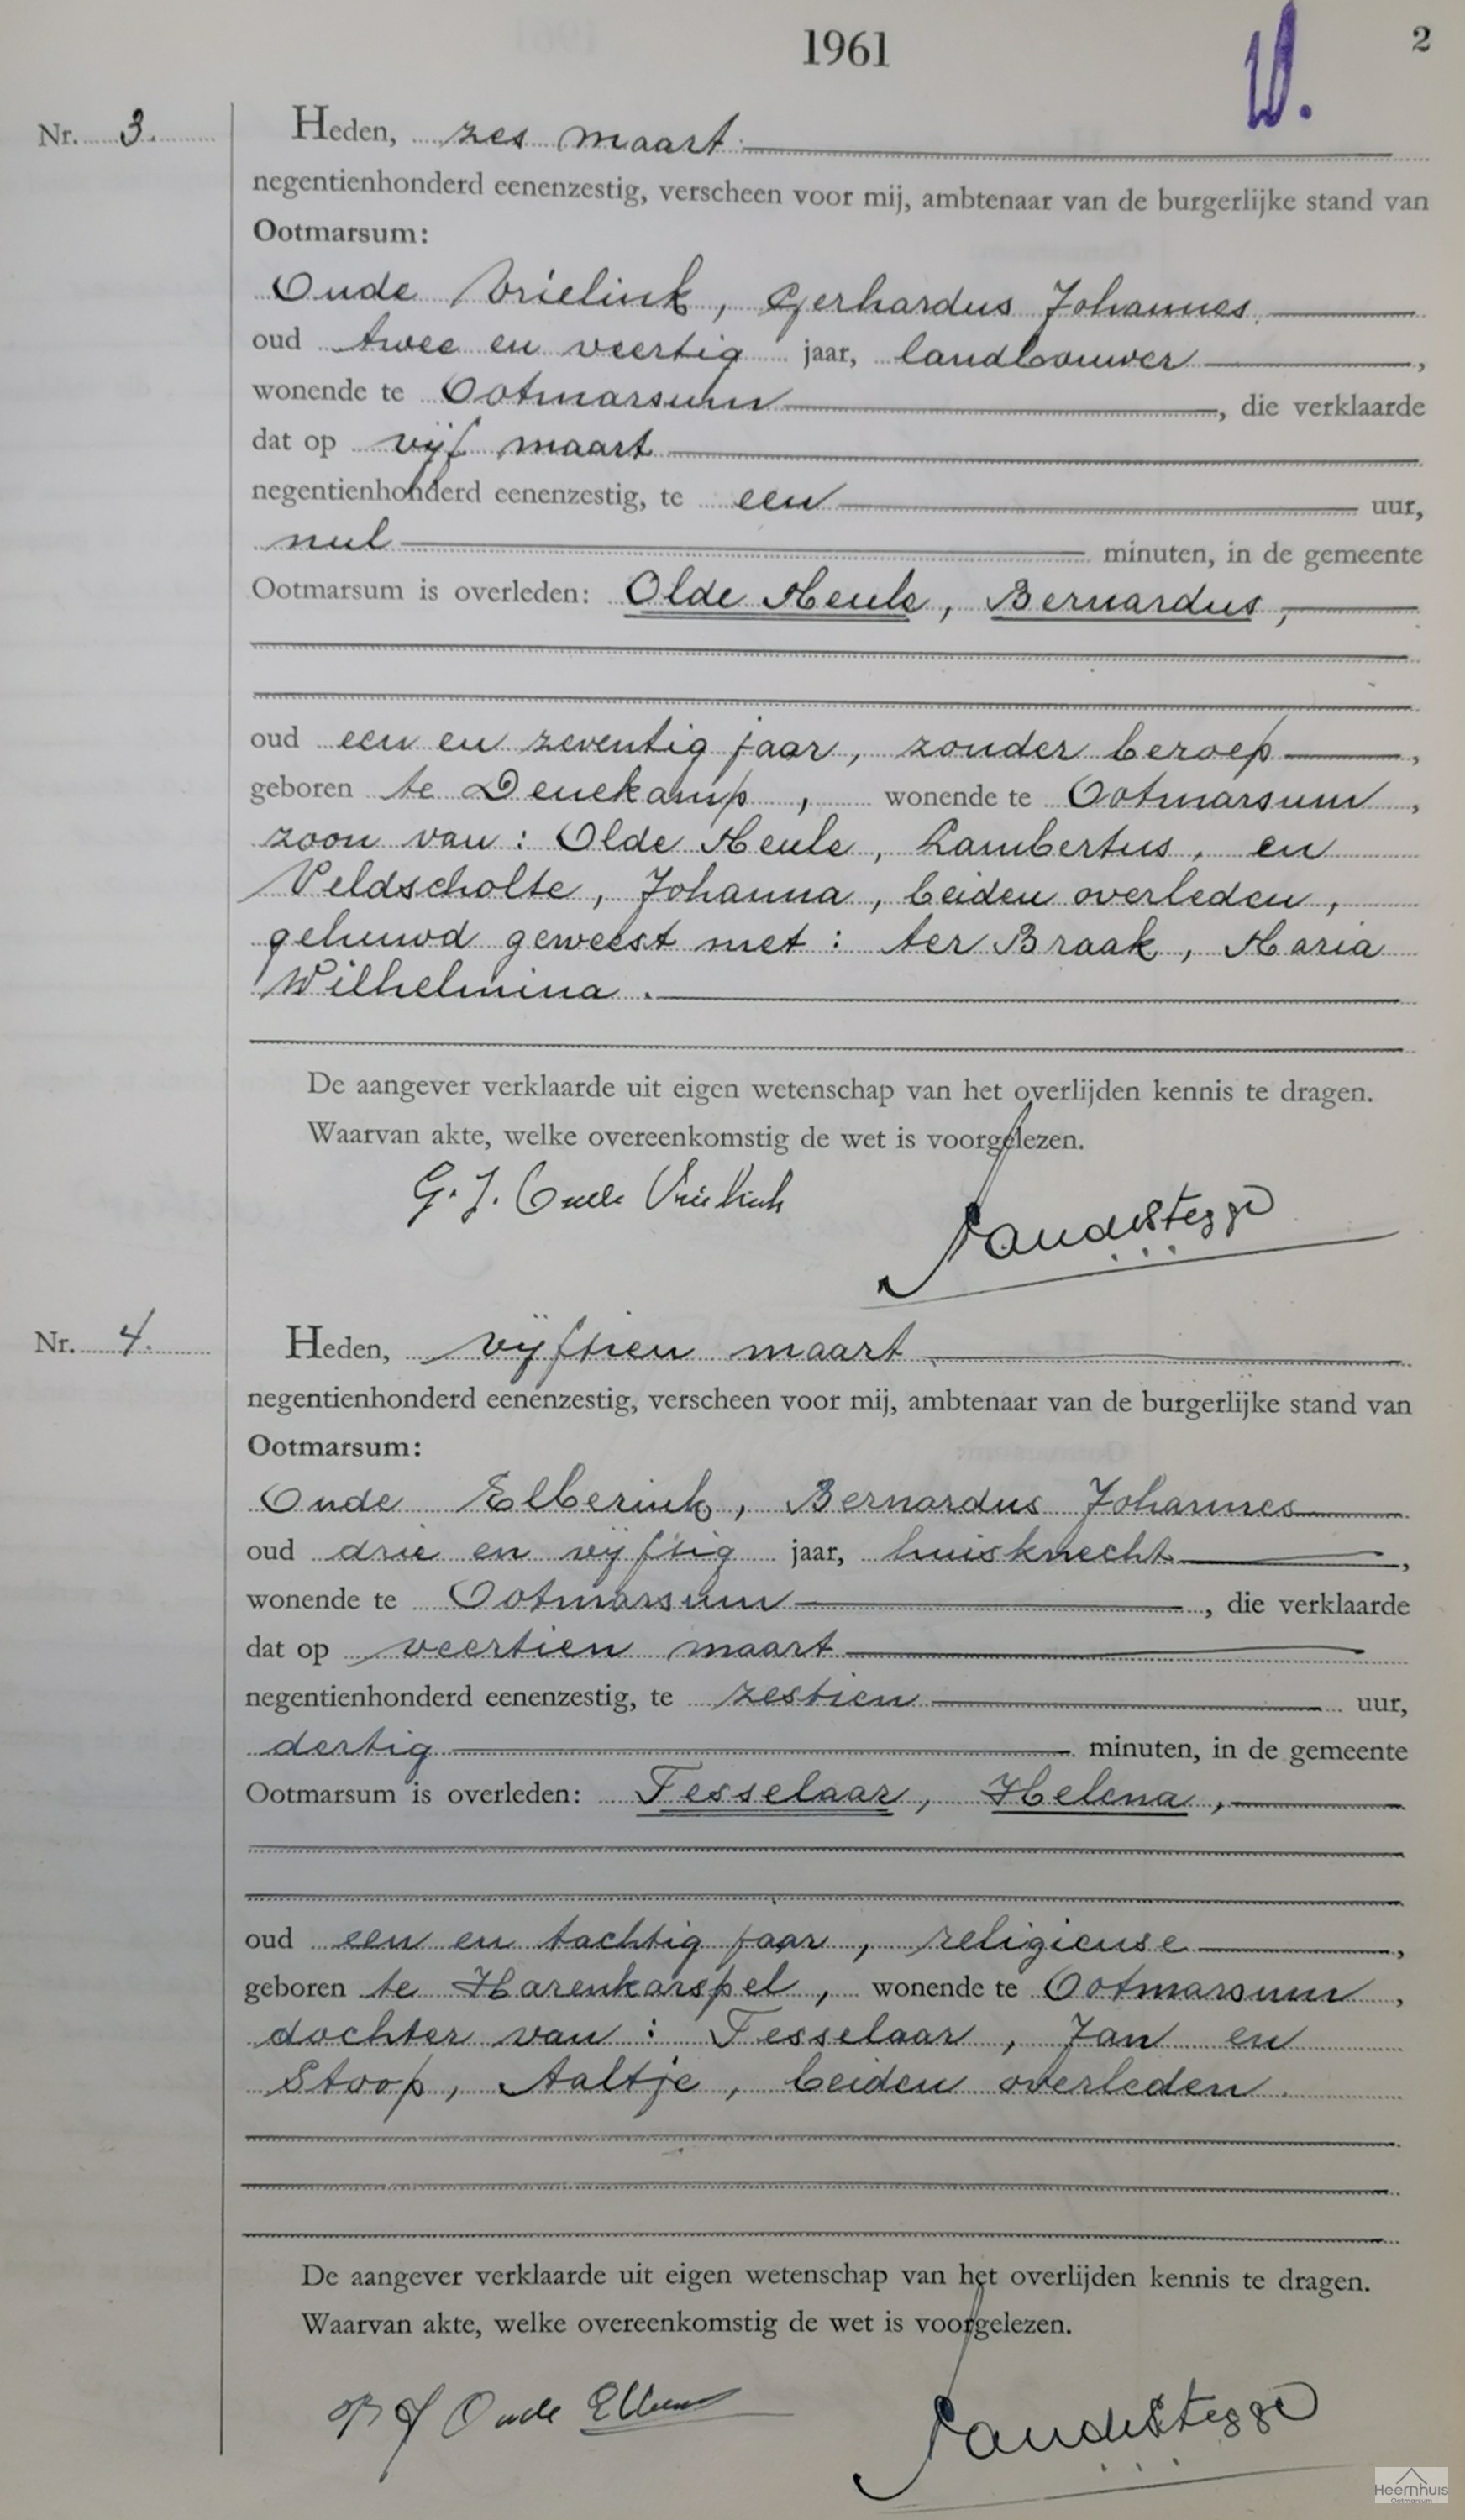 1961
2
Nr. 3.
Heden, zes maart
negentienhonderd eenenzestig, verscheen voor mij, ambtenaar van de burgerlijke stand van
Ootmarsum:
Oude Vrielink, Gerhardus Johannes
oud twee en veertig jaar, landbouwer,
wonende te Ootmarsum, die verklaarde
dat op vijf maart
negentienhonderd eenenzestig, te een uur,
nul minuten, in de gemeente
Ootmarsum is overleden: Olde Meule, Bernardus,
oud een en zeventig jaar, zonder beroep,
geboren te Denekamp, wonende te Ootmarsum,
zoon van: Olde Meule, Lambertus, en
Veldscholte, Johanna, beiden overleden,
gehuwd geweest met: ter Braak, Maria
Wilhelmina.
De aangever verklaarde uit eigen wetenschap van het overlijden kennis te dragen.
Waarvan akte, welke overeenkomstig de wet is voorgelezen.
G. J. Oude Vrielink
Nr. 4.
Heden, vijftien maart
negentienhonderd eenenzestig, verscheen voor mij, ambtenaar van de burgerlijke stand van
Ootmarsum:
Oude Elberink, Bernardus Johannes
oud drie en vijftig jaar, huisknecht,
wonende te Ootmarsum, die verklaarde
dat op veertien maart
negentienhonderd eenenzestig, te zestien uur,
dertig minuten, in de gemeente
Ootmarsum is overleden: Tesselaar, Helena,
oud een en tachtig jaar, religieuse,
geboren te Harenkarspel, wonende te Ootmarsum,
dochter van: Tesselaar, Jan en
Stoop, Aaltje, beiden overleden.
De aangever verklaarde uit eigen wetenschap van het overlijden kennis te dragen.
Waarvan akte, welke overeenkomstig de wet is voorgelezen.
B J Oude
Heemhuis
Ootmarsum